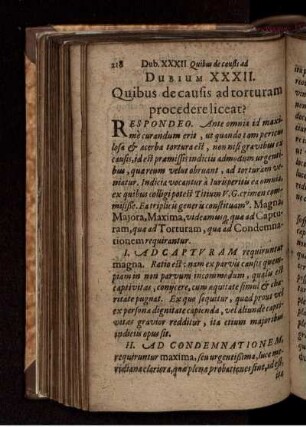 218 Dub. XXXII Quibus de causis ad
DUBIUM XXXII.
Quibus de causis ad torturam
procedere liceat?
RESPONDEO. Ante omnia id maxi-
mè curandum erit, ut quando tam pericu-
losa & acerba tortura est, non nisi gravibus ex
causis, id est præmissis indiciis admodum urgenti-
bus, quæ reum velut obruant, ad torturam ve-
niatur. Indicia vocantur à Iurisperitis ea omnia,
ex quibus colligi potest Titium V. G. crimen com-
misisse. Ea triplicis generis constituam. Magna,
Majora, Maxima, videamusq, quæ ad Captu-
ram, quæ ad Torturam, quæ ad Condemna-
tionem requirantur.
I. AD CAPTURAM requiruntur
magna. Ratio est: nam ex parvis causis quem-
piam in non parvum incommodum, qualis est
captivitas, conjicere, cum æquitate simul & cha-
ritate pugnat. Ex quo sequitur, quod prout vel
ex personæ dignitate capiendæ, vel aliunde capti-
vitas gravior redditur, ita etiam majoribus
indiciis opus sit.
II. AD CONDEMNATIONEM,
requiruntur maxima, seu urgentissima, luce me-
ridiana clariora, quæ plenæ probationes sint, id est,